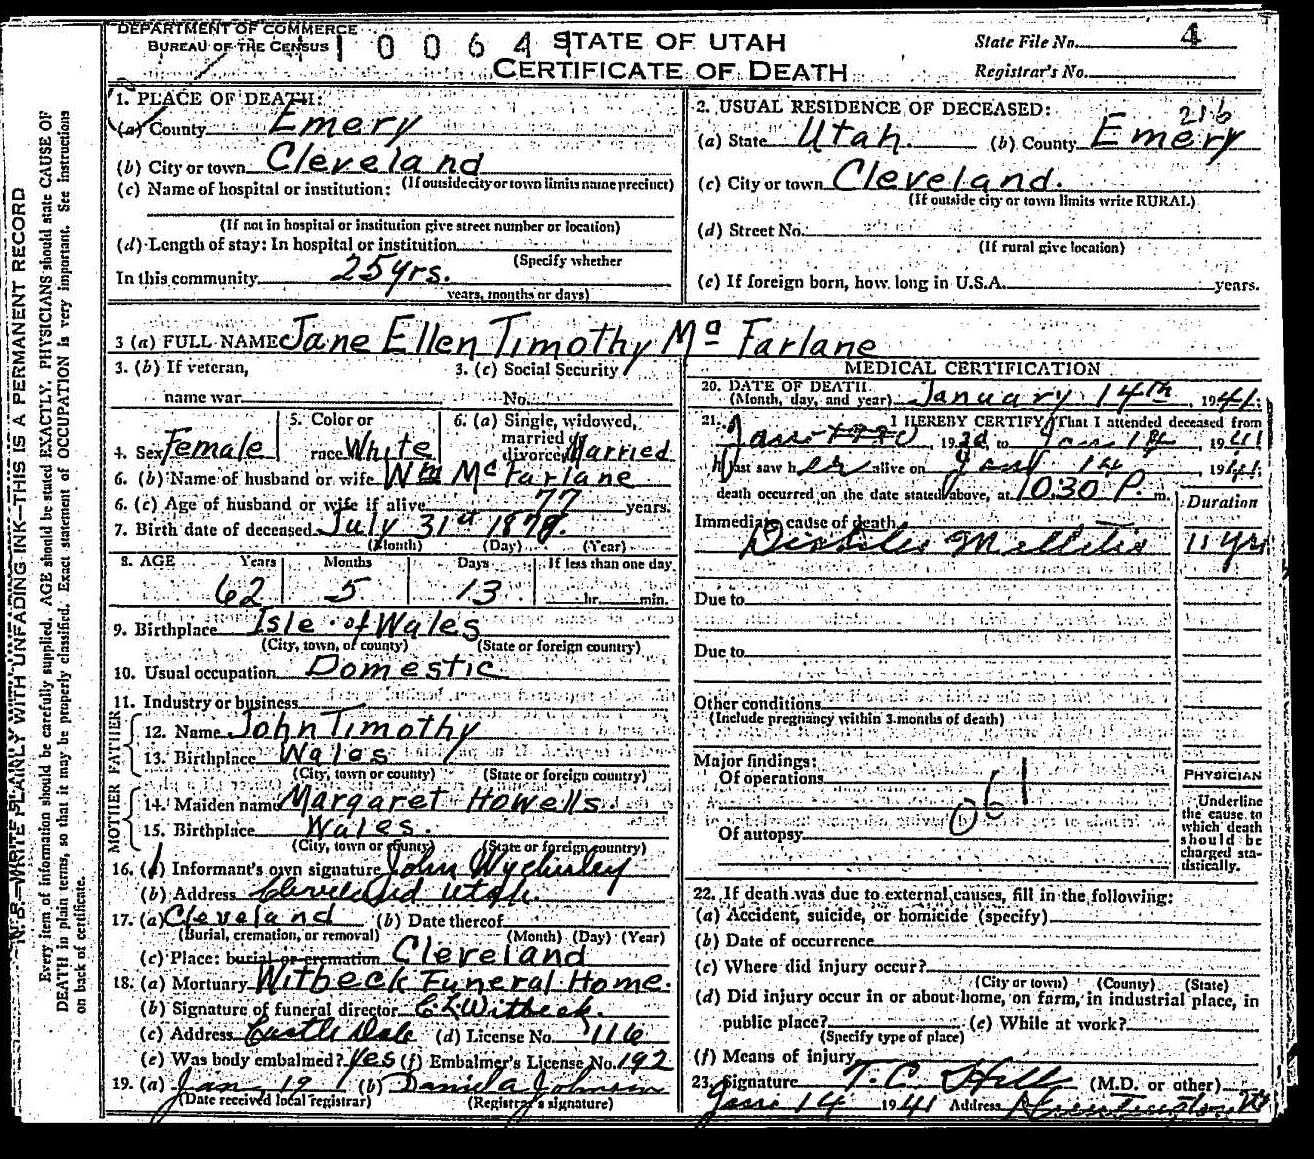 DEPARTMENT OF COMMERCE
BUREAU OF THE CENSUS
1 0 0 6 4
STATE OF UTAH
CERTIFICATE OF DEATH
State File No. 4
Registrar's No.
1. PLACE OF DEATH:
(a) County Emery
(b) City or town Cleveland
(If outside city or town limits name precinct)
(c) Name of hospital or institution:
(If not in hospital or institution give street number or location)
(d) Length of stay: In hospital or institution
(Specify whether
In this community 25 yrs.
years, months or days)
2. USUAL RESIDENCE OF DECEASED:
216
(a) State Utah. (b) County Emery
(c) City or town Cleveland.
(If outside city or town limits write RURAL)
(d) Street No.
(If rural give location)
(e) If foreign born, how long in U.S.A. years.
3 (a) FULL NAME Jane Ellen Timothy Mc Farlane
3. (b) If veteran,
name war
3. (c) Social Security
No.
4. Sex Female
5. Color or
race White
6. (a) Single, widowed,
married
divorced Married
6. (b) Name of husband or wife Wm Mc Farlane
6. (c) Age of husband or wife if alive 77 years.
7. Birth date of deceased July 31st 1878.
(Month) (Day) (Year)
8. AGE Years Months Days If less than one day
62 5 13 hr. min.
9. Birthplace Isle of Wales
(City, town, or county) (State or foreign country)
10. Usual occupation Domestic
11. Industry or business
FATHER
12. Name John Timothy
13. Birthplace Wales
(City, town or county) (State or foreign country)
MOTHER
14. Maiden name Margaret Howells.
15. Birthplace Wales.
(City, town or county) (State or foreign country)
16. Informant's own signature John Wycherley
(b) Address Cleveland Utah.
17. (a) Cleveland (b) Date thereof
(Burial, cremation, or removal) (Month) (Day) (Year)
(c) Place: burial or cremation Cleveland
18. (a) Mortuary Witbeck Funeral Home.
(b) Signature of funeral director C L Witbeck.
(c) Address Castle Dale (d) License No. 116
(e) Was body embalmed? Yes (f) Embalmer's License No. 192
19. (a) Jan (b) Johnson
(Date received local registrar) (Registrar's signature)
MEDICAL CERTIFICATION
20. DATE OF DEATH
(Month, day, and year) January 14th, 1941.
21. I HEREBY CERTIFY, That I attended deceased from
19 to 1941
I last saw her alive on Jan 14 1941
death occurred on the date stated above, at 1030 P. m.
Duration
Immediate cause of death
Diabetes Mellitis 11 yrs
Due to
Due to
Other conditions
(Include pregnancy within 3 months of death)
Major findings:
Of operations
061
Of autopsy
PHYSICIAN
Underline
the cause to
which death
should be
charged sta-
tistically.
22. If death was due to external causes, fill in the following:
(a) Accident, suicide, or homicide (specify)
(b) Date of occurrence
(c) Where did injury occur?
(City or town) (County) (State)
(d) Did injury occur in or about home, on farm, in industrial place, in
public place? (e) While at work?
(Specify type of place)
(f) Means of injury
23. Signature T. C. Hill (M.D. or other)
Jan 14 1941 Address Huntington Ut
N.B.—WRITE PLAINLY WITH UNFADING INK—THIS IS A PERMANENT RECORD
Every item of information should be carefully supplied. AGE should be stated EXACTLY. PHYSICIANS should state CAUSE OF
DEATH in plain terms, so that it may be properly classified. Exact statement of OCCUPATION is very important. See instructions
on back of certificate.